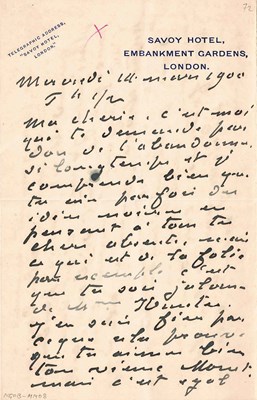 72
TELEGRAPHIC ADDRESS,
"SAVOY HOTEL,
LONDON."
SAVOY HOTEL,
EMBANKMENT GARDENS,
LONDON.
Mercredi 14 mars 1900
Ma cherie, c'est moi
qui te demande par
don de l'abandonner
si longtemps et je
comprends bien que
tu aies parfois des
idées noires en
pensant à tous tes
chers absents, mais
ce qui est de la folie
par exemple c'est
que tu sois jalouse
de Mme
J'en suis fier par
ce que cela prouve
que tu aimes bien
ton vieux
mari c'est égal